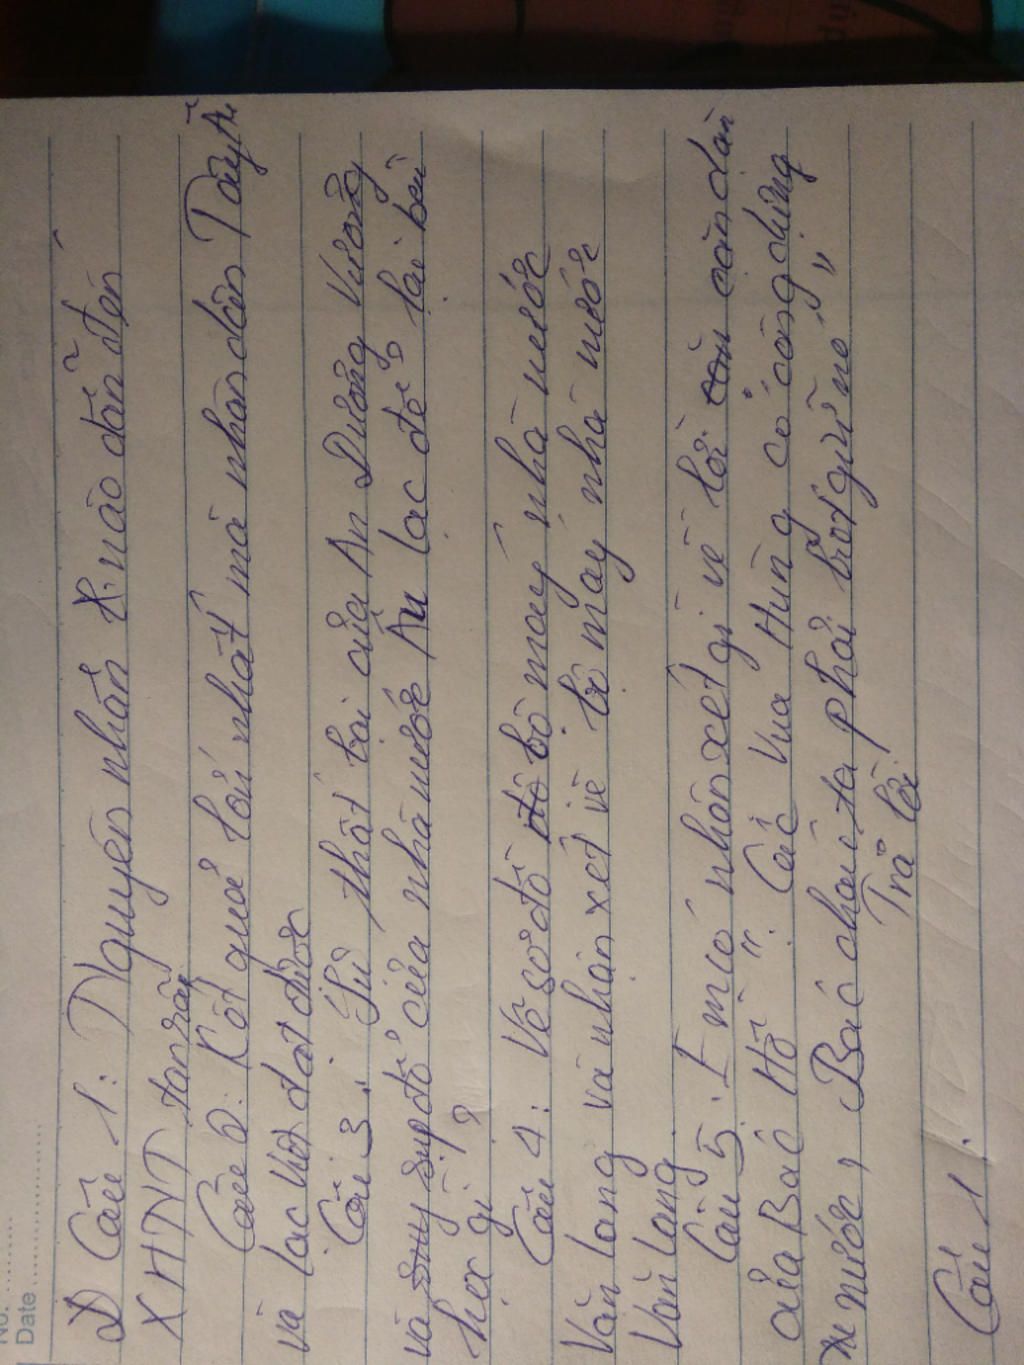 No: ..........
Date ....................
Câu 1: Nguyên nhân nào dẫn đến
XHNT tan rã
Câu 2: Kết quả lớn nhất mà nhân dân Tây Âu
và lạc Việt đạt được
Câu 3. Sự thất bại của An Dương Vương
và sụp đổ của nhà nước Âu lạc để lại bài
học gì ?
Câu 4: Vẽ sơ đồ bộ máy nhà nước
Văn lang và nhận xét về bộ máy nhà nước
Văn lang.
Câu 5. Em có nhận xét gì về lời căn dặn
của Bác Hồ ". Các Vua Hùng có công dựng
nước, Bác cháu ta phải giữ nó"
Trả lời
Câu 1.